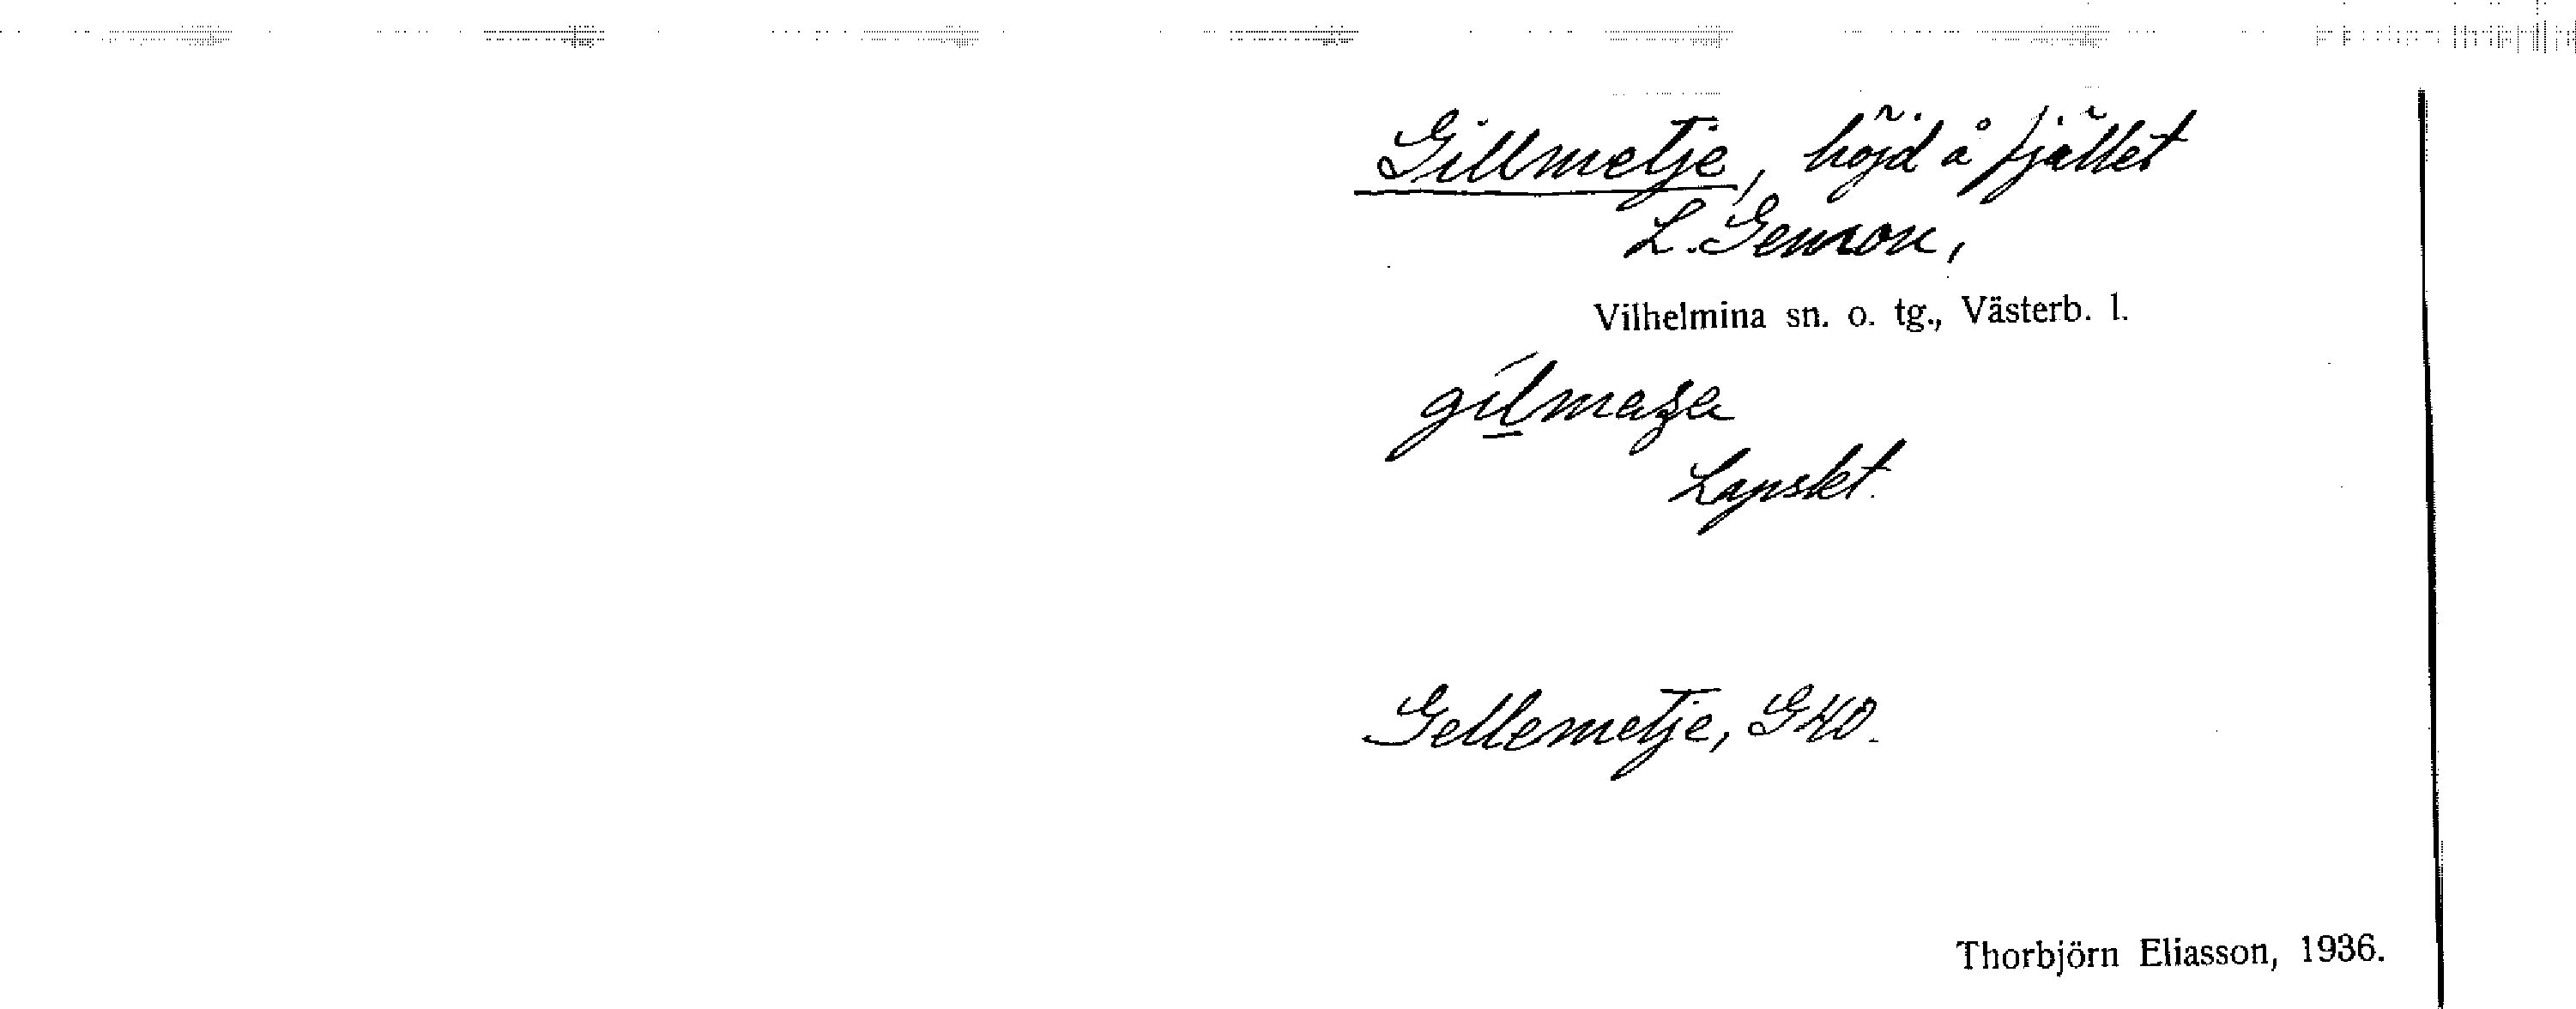 Gillmetje, höjd å fjället
L. Gemon,
Vilhelmina sn. o. tg., Västerb. l.
Lapskt.
Gellemetje, GKO.
Thorbjörn Eliasson, 1936.